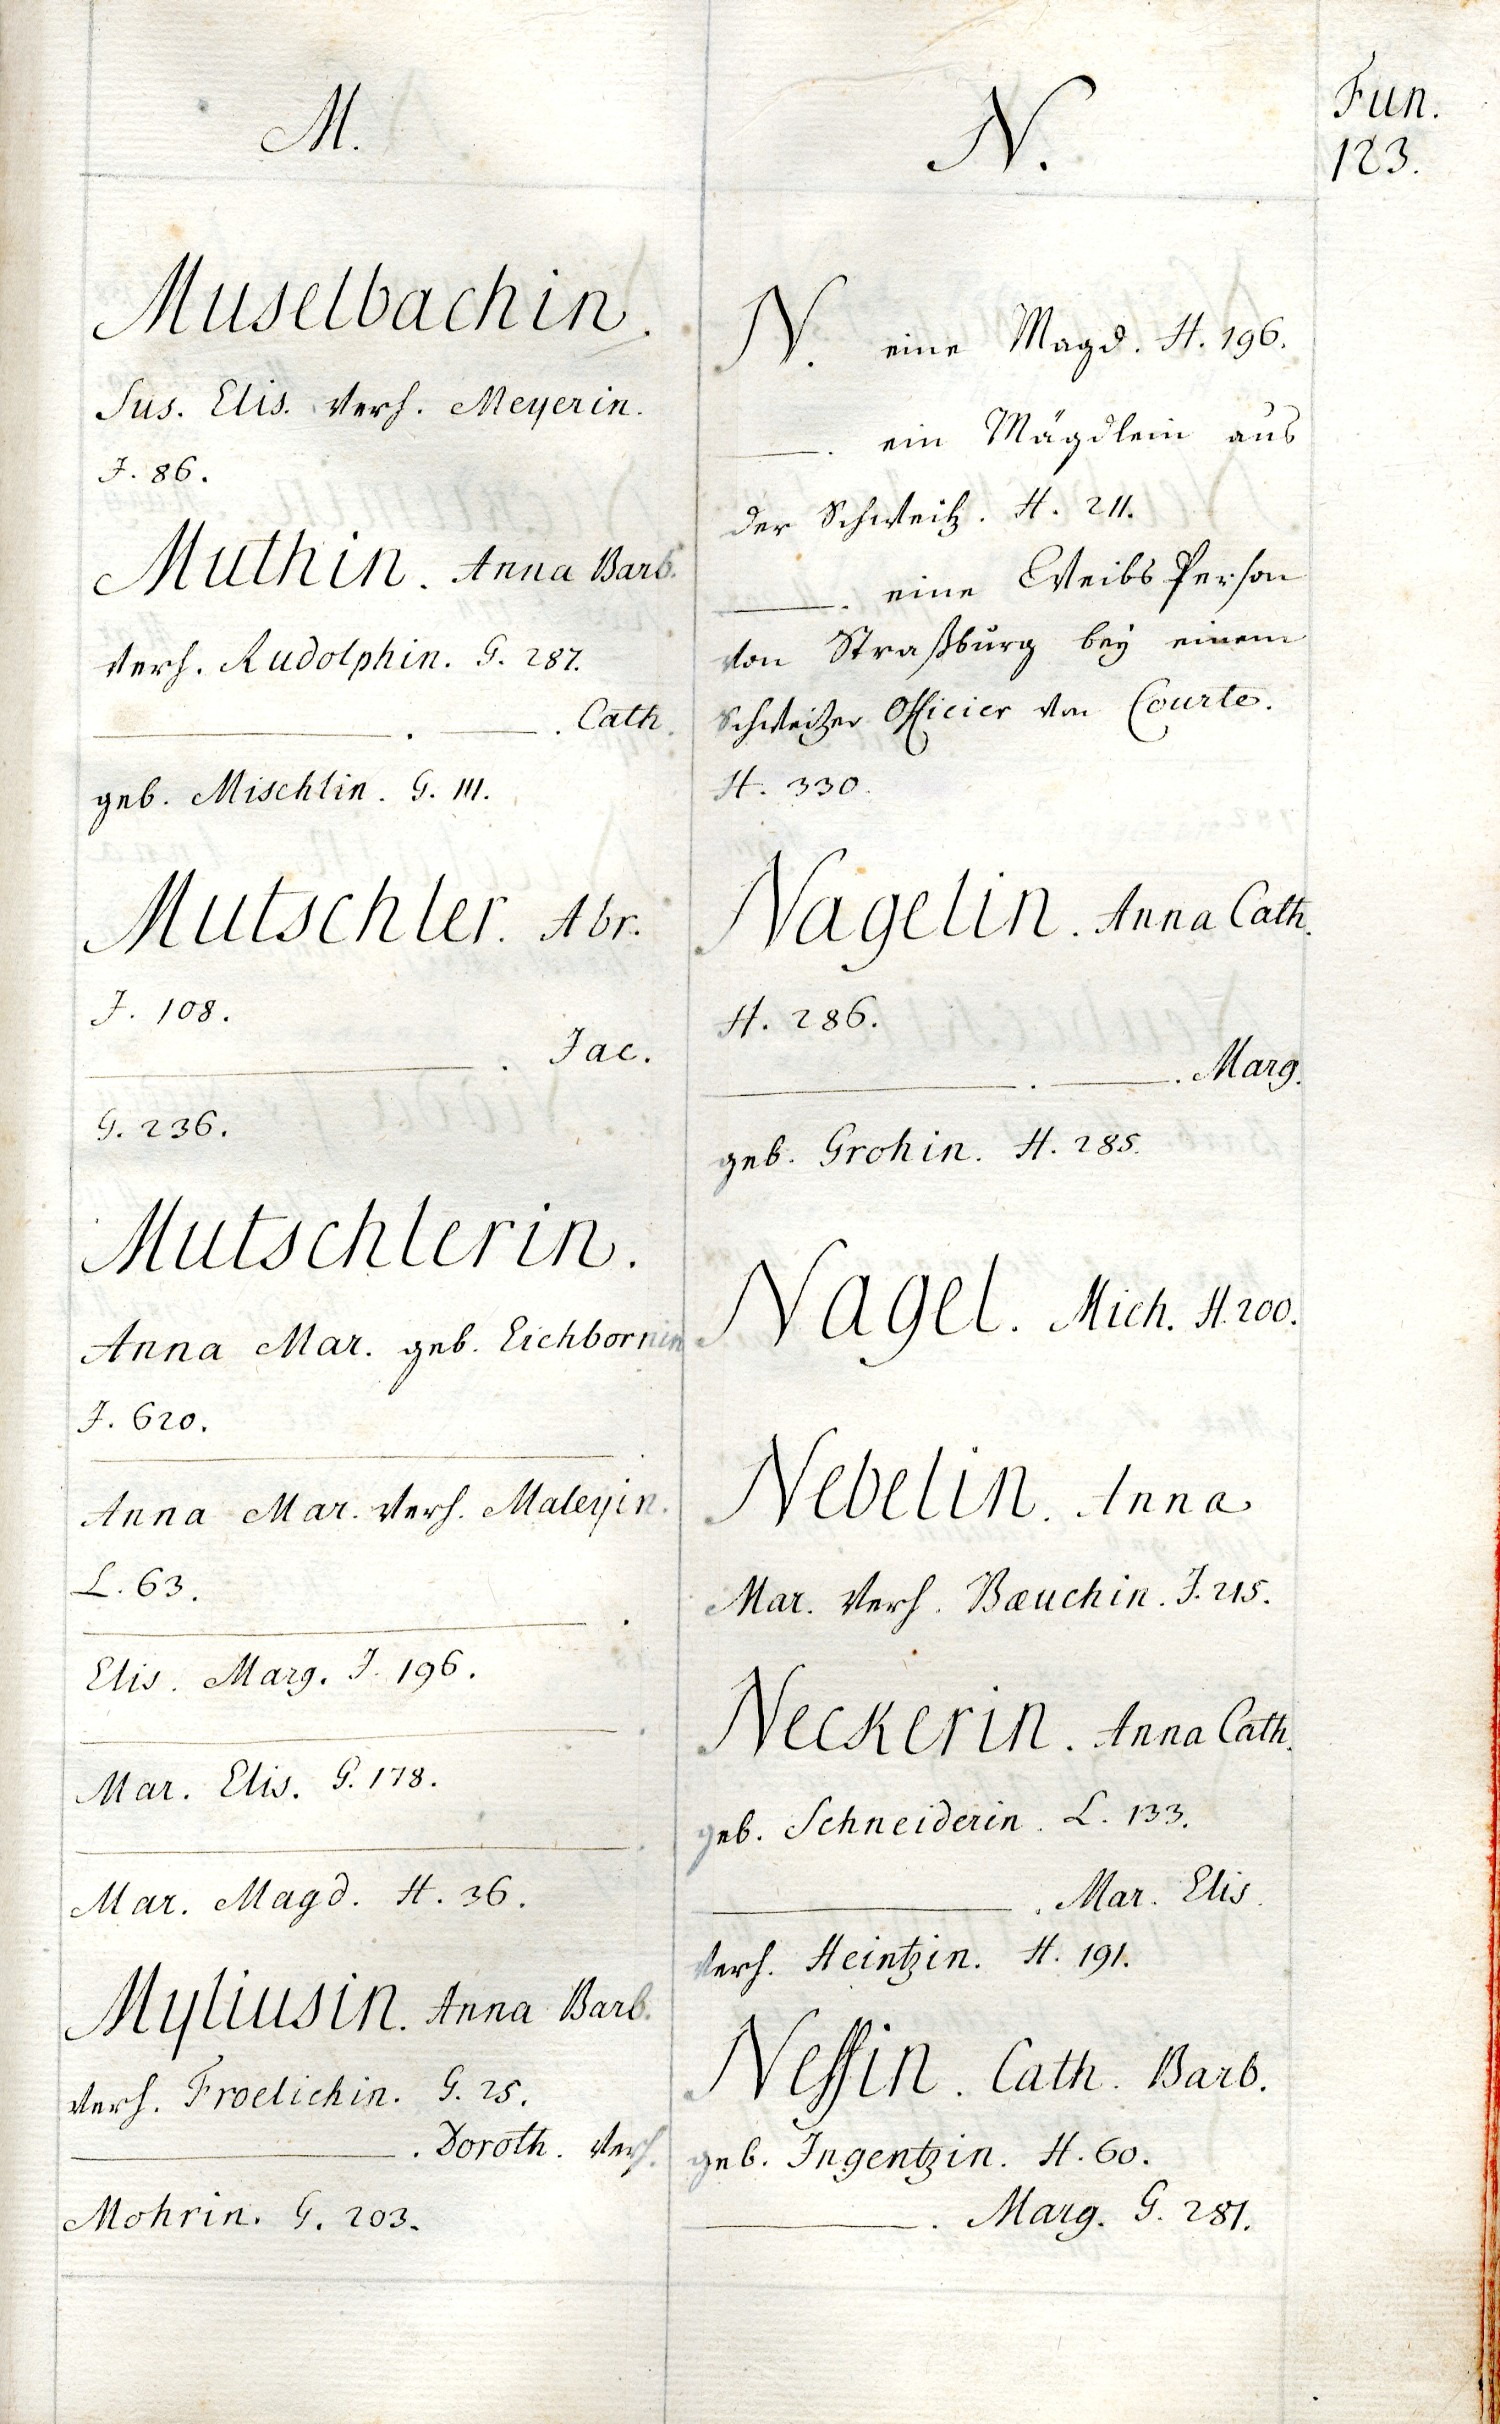 M.
Muselbachin.
Sus. Elis. verh. Meyerin.
J. 86.
Muthin. Anna Barb.
verh. Rudolphin. G. 287.
———. ———. Cath.
geb. Mischlin. G. 111.
Mutschler. Abr.
J. 108.
———. Jac.
G. 236.
Mutschlerin.
Anna Mar. geb. Eichbornin
J. 620.
———.
Anna Mar. verh. Maleyin.
L. 63.
———.
Elis. Marg. J. 196.
———.
Mar. Elis. G. 178.
———.
Mar. Magd. H. 36.
Myliusin. Anna Barb.
verh. Froelichin. G. 25.
———. Doroth. verh.
Mohrin. G. 203.
N.
N. eine Magd. H. 196.
———. ein Mägdlein aus
der Schweitz. H. 211.
———. eine Weibs Person
von Straßburg bey einem
Schweitzer Officier von Courte.
H. 330.
Nagelin. Anna Cath.
H. 286.
———. ———. Marg.
geb. Grohin. H. 285.
Nagel. Mich. H. 200.
Nebelin. Anna
Mar. verh. Bæuchin. J. 215.
Neckerin. Anna Cath.
geb. Schneiderin. L. 133.
———. Mar. Elis.
verh. Heintzin. H. 191.
Nessin. Cath. Barb.
geb. Ingentzin. H. 60.
———. Marg. G. 281.
Fun.
123.